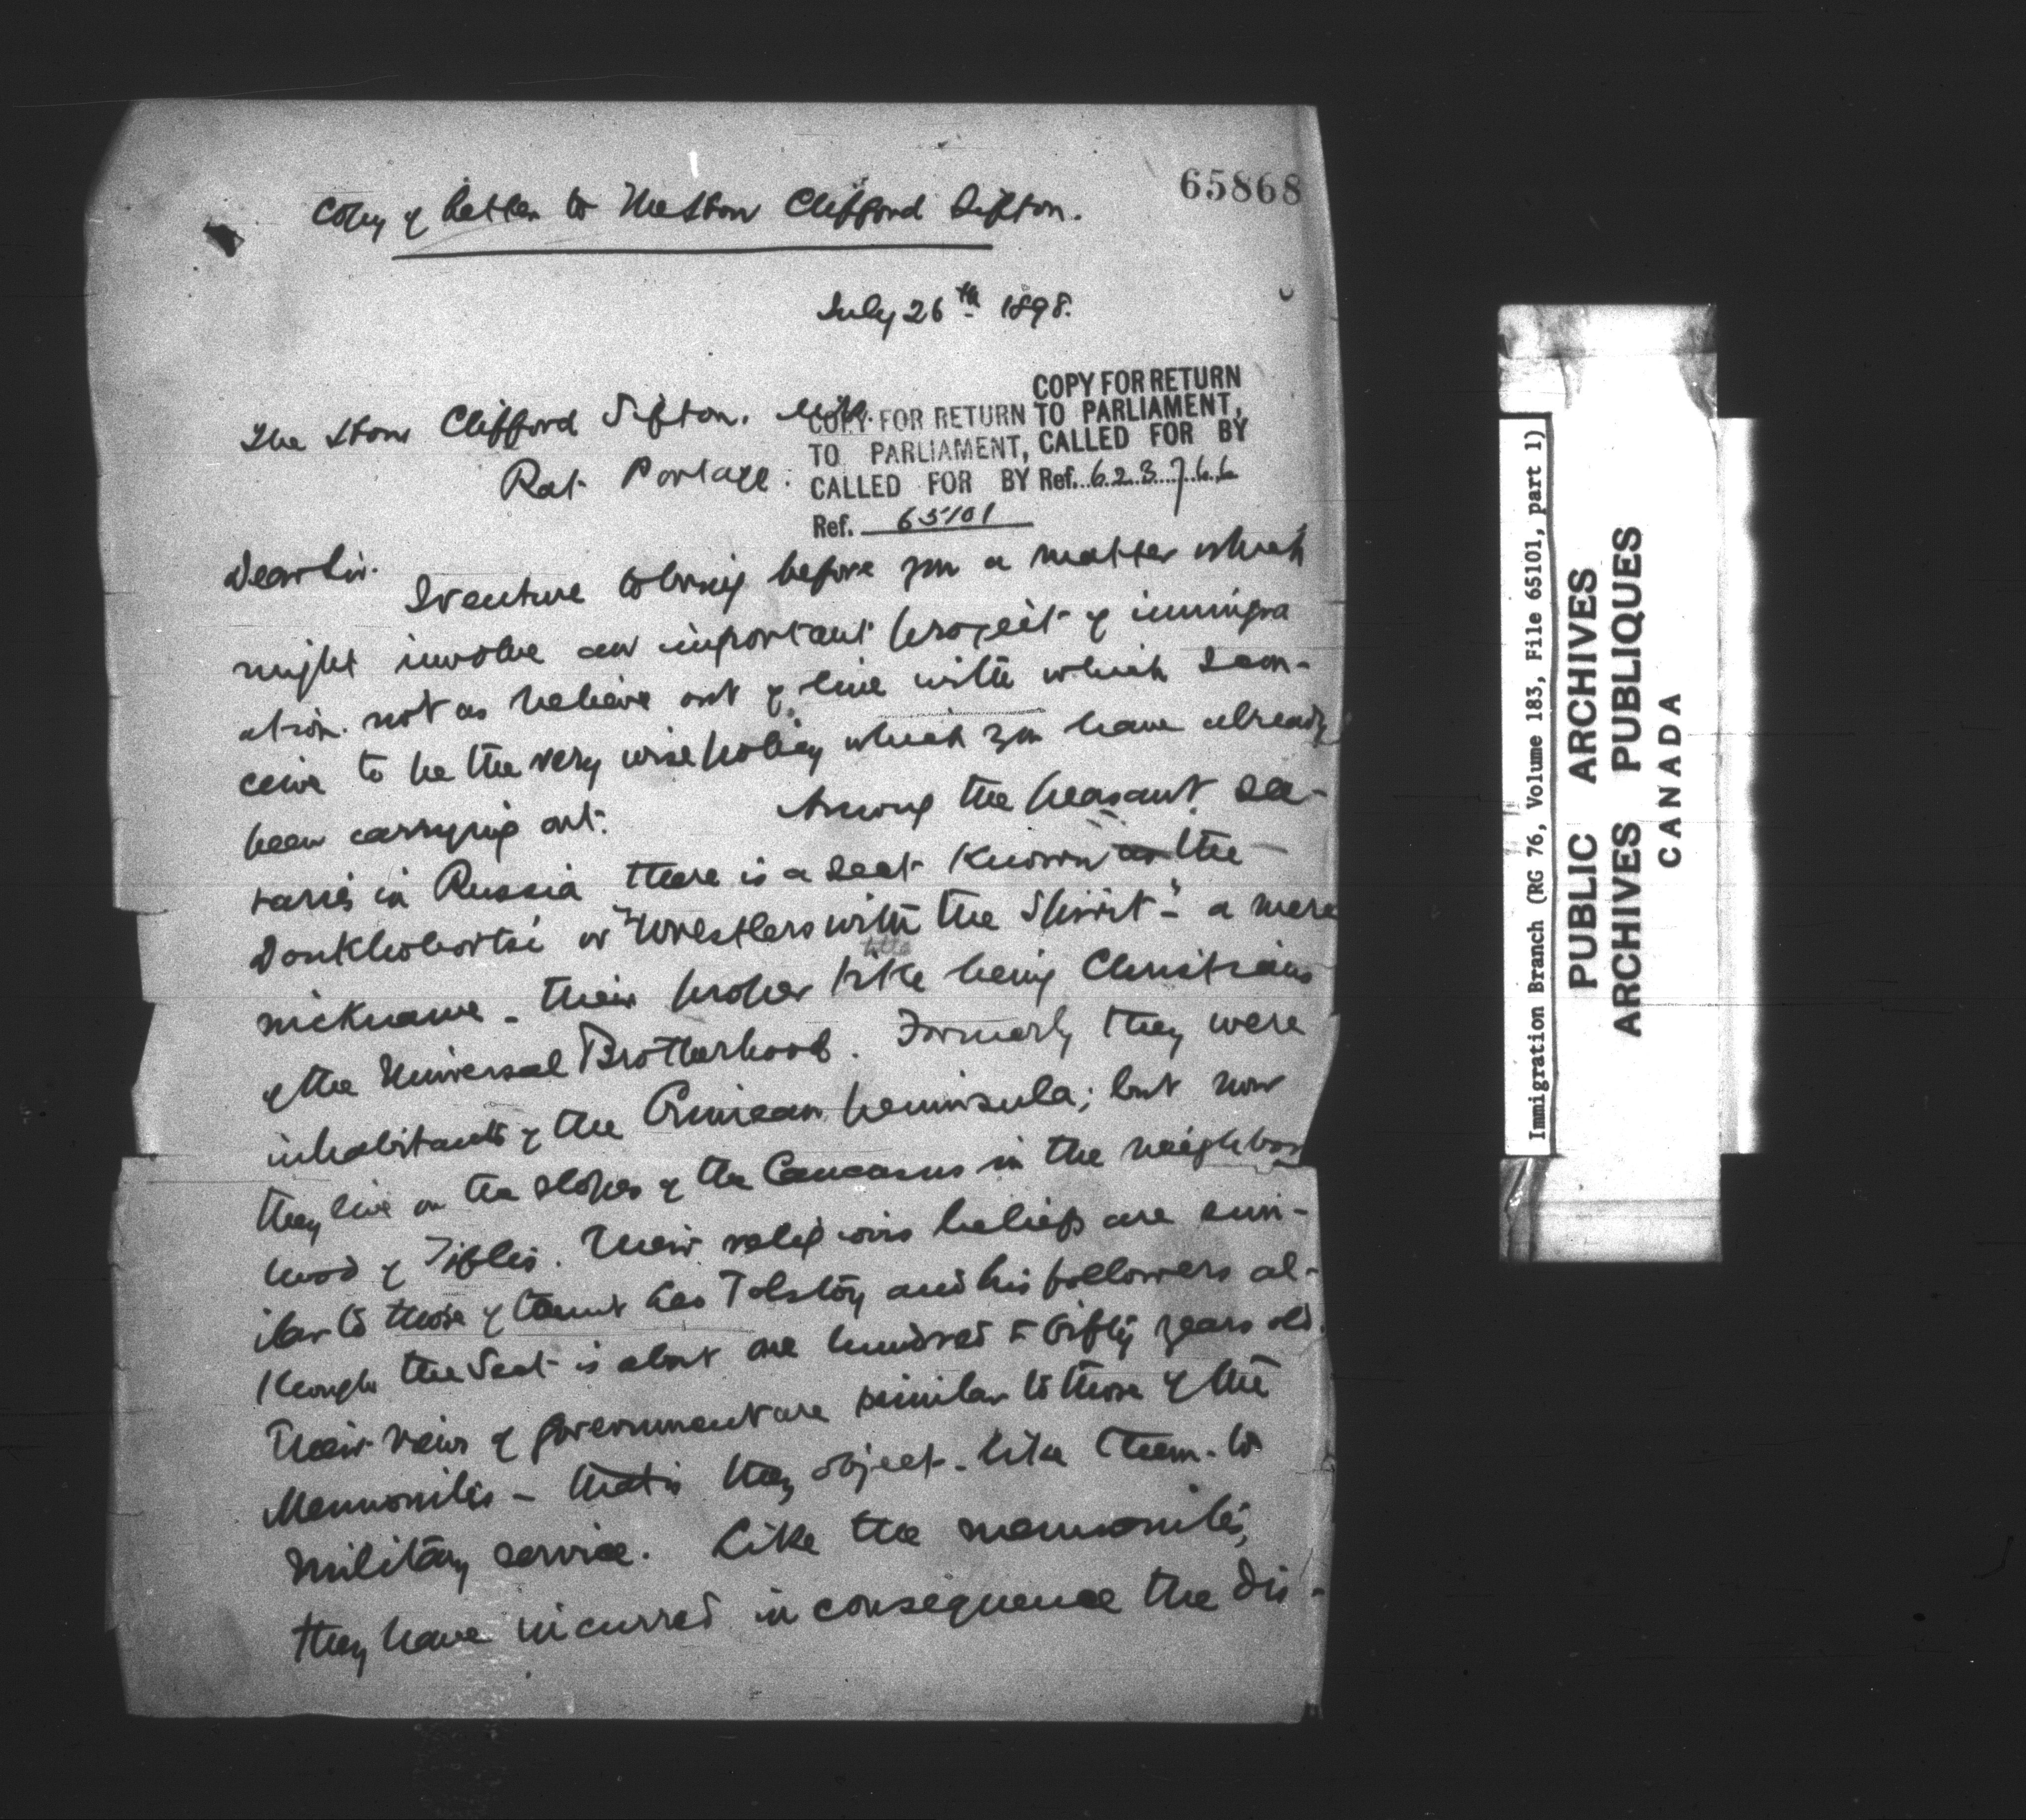 65868
Copy of Letter to The Hon Clifford Sifton.
July 26th 1898.
The Hon Clifford Sifton.
Rat Portage.
COPY FOR RETURN
TO PARLIAMENT,
CALLED FOR BY
Ref. 65101
COPY FOR RETURN
TO PARLIAMENT,
CALLED FOR BY
Ref. 623766
Dear Sir.
I venture to bring before you a matter which
might involve an important project of immigra
ation. not as believe out of line with which I con-
ceive to be the very wise policy which you have already
been carrying out. Among the peasant sec-
taries in Russia there is a sect known as the
Doukhobortsi or "Wrestlers with the Spirit" - a mere
nickname - their proper title being Christians
of the Universal Brotherhood. Formerly they were
inhabitants of the Crimean peninsula; but now
they live on the slopes of the Caucasus in the neighbor
hood of Tiflis. Their religious beliefs are sim-
ilar to those of Count Leo Tolstoy and his followers al-
though the sect is about one hundred & fifty years old.
Their views of government are similar to those of the
Mennonites - that is they object - like them - to
military service. Like the mennonites,
they have incurred in consequence the dis-
Immigration Branch (RG 76, Volume 183, File 65101, part 1)
PUBLIC ARCHIVES
ARCHIVES PUBLIQUES
CANADA